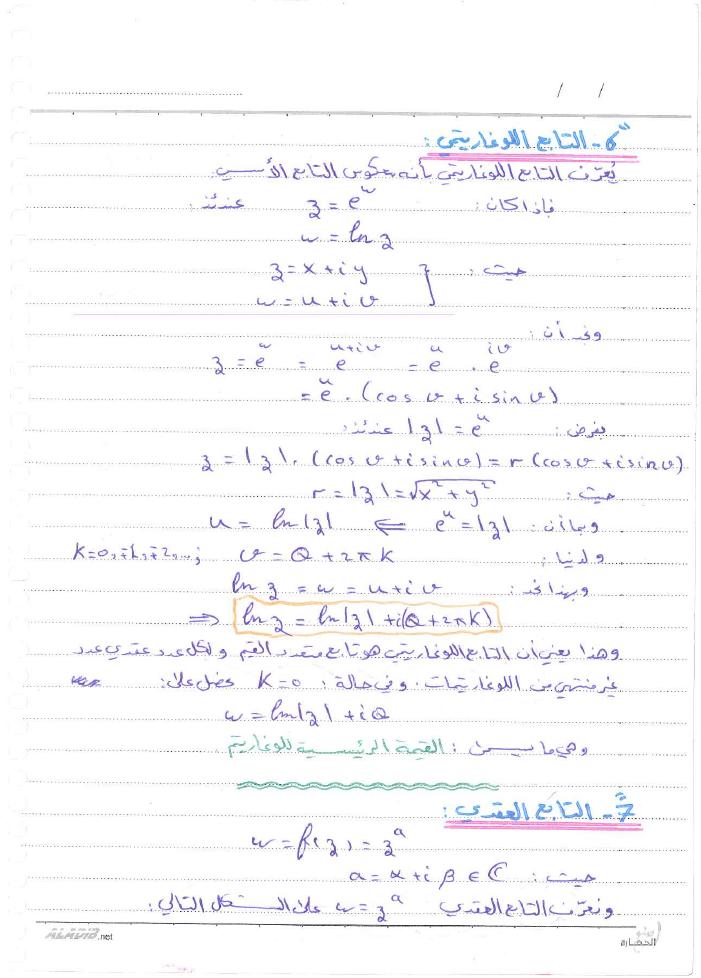 / /
6- التابع اللوغاريتمي:
يُعرّف التابع اللوغاريتمي بأنه عكوس التابع الأسي
فإذا كان: z = e^w عندئذ:
w = ln z
حيث: z = x + i y
w = u + i v
ونجد أن:
z = e^w = e^{u+iv} = e^u . e^{iv}
= e^u . (cos v + i sin v)
بفرض: |z| = e^u عندئذ:
z = |z| . (cos v + i sin v) = r (cos v + i sin v)
حيث: r = |z| = √(x² + y²)
وبما أن: e^u = |z| ⇐ u = ln|z|
ولدينا: v = θ + 2πK K = 0, ∓1, ∓2, ...;
وبهذا نجد: ln z = w = u + i v
⇒ ln z = ln|z| + i(θ + 2πK)
وهذا يعني أن التابع اللوغاريتمي هو تابع متعدد القيم ولكل عدد عقدي عدد
غير منتهي من اللوغاريتمات. وفي حالة: K = 0 نحصل على:
w = ln|z| + iθ
وهي ما يسمى: القيمة الرئيسية للوغاريتم
7- التابع العقدي:
w = f(z) = z^a
حيث: a = α + i β ∈ ℂ
ونعرّف التابع العقدي w = z^a على الشكل التالي:
ALADIB.net
الحضارة